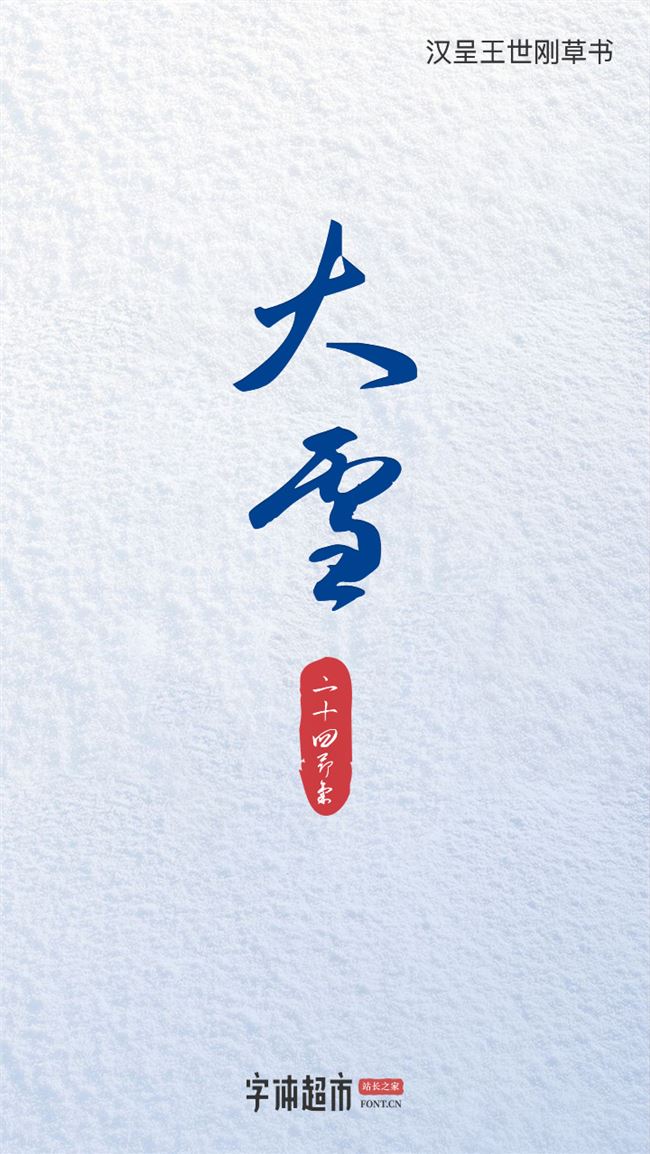 汉呈王世刚草书
大雪
二十四节气
字体超市
站长之家
FONT.CN